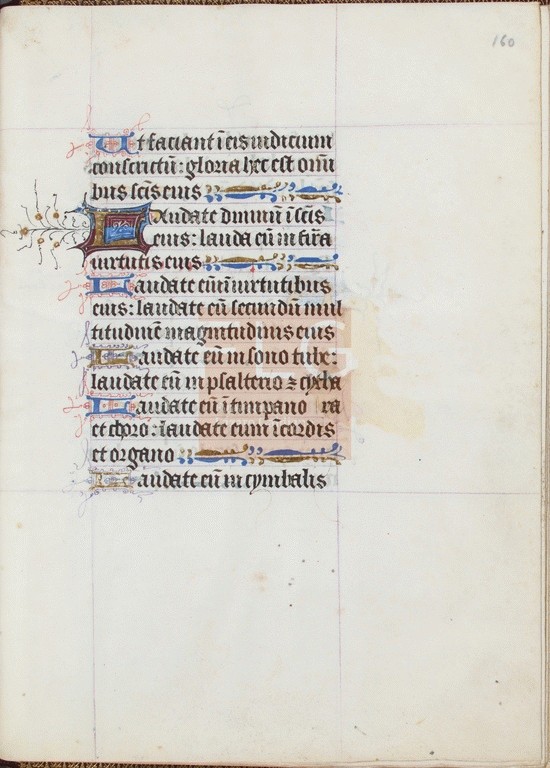 160
Ut faciant ĩ eis iudicium
conscriptũ: gloria hec est om̃i
bus sc̃is eius
Laudate dominũ ĩ sc̃is
eius: lauda eũ in fir̃a
uirtutis eius
Laudate eũ ĩ uirtutibus
eius: laudate eũ secundũ mul
titudinẽ magnitudinis eius
Laudate eũ in sono tube:
laudate eũ in psalterio ⁊ cyth̃a
Laudate eũ ĩ timpano
et choro: laudate eum ĩ cordis
et organo
Laudate eũ in cymbalis